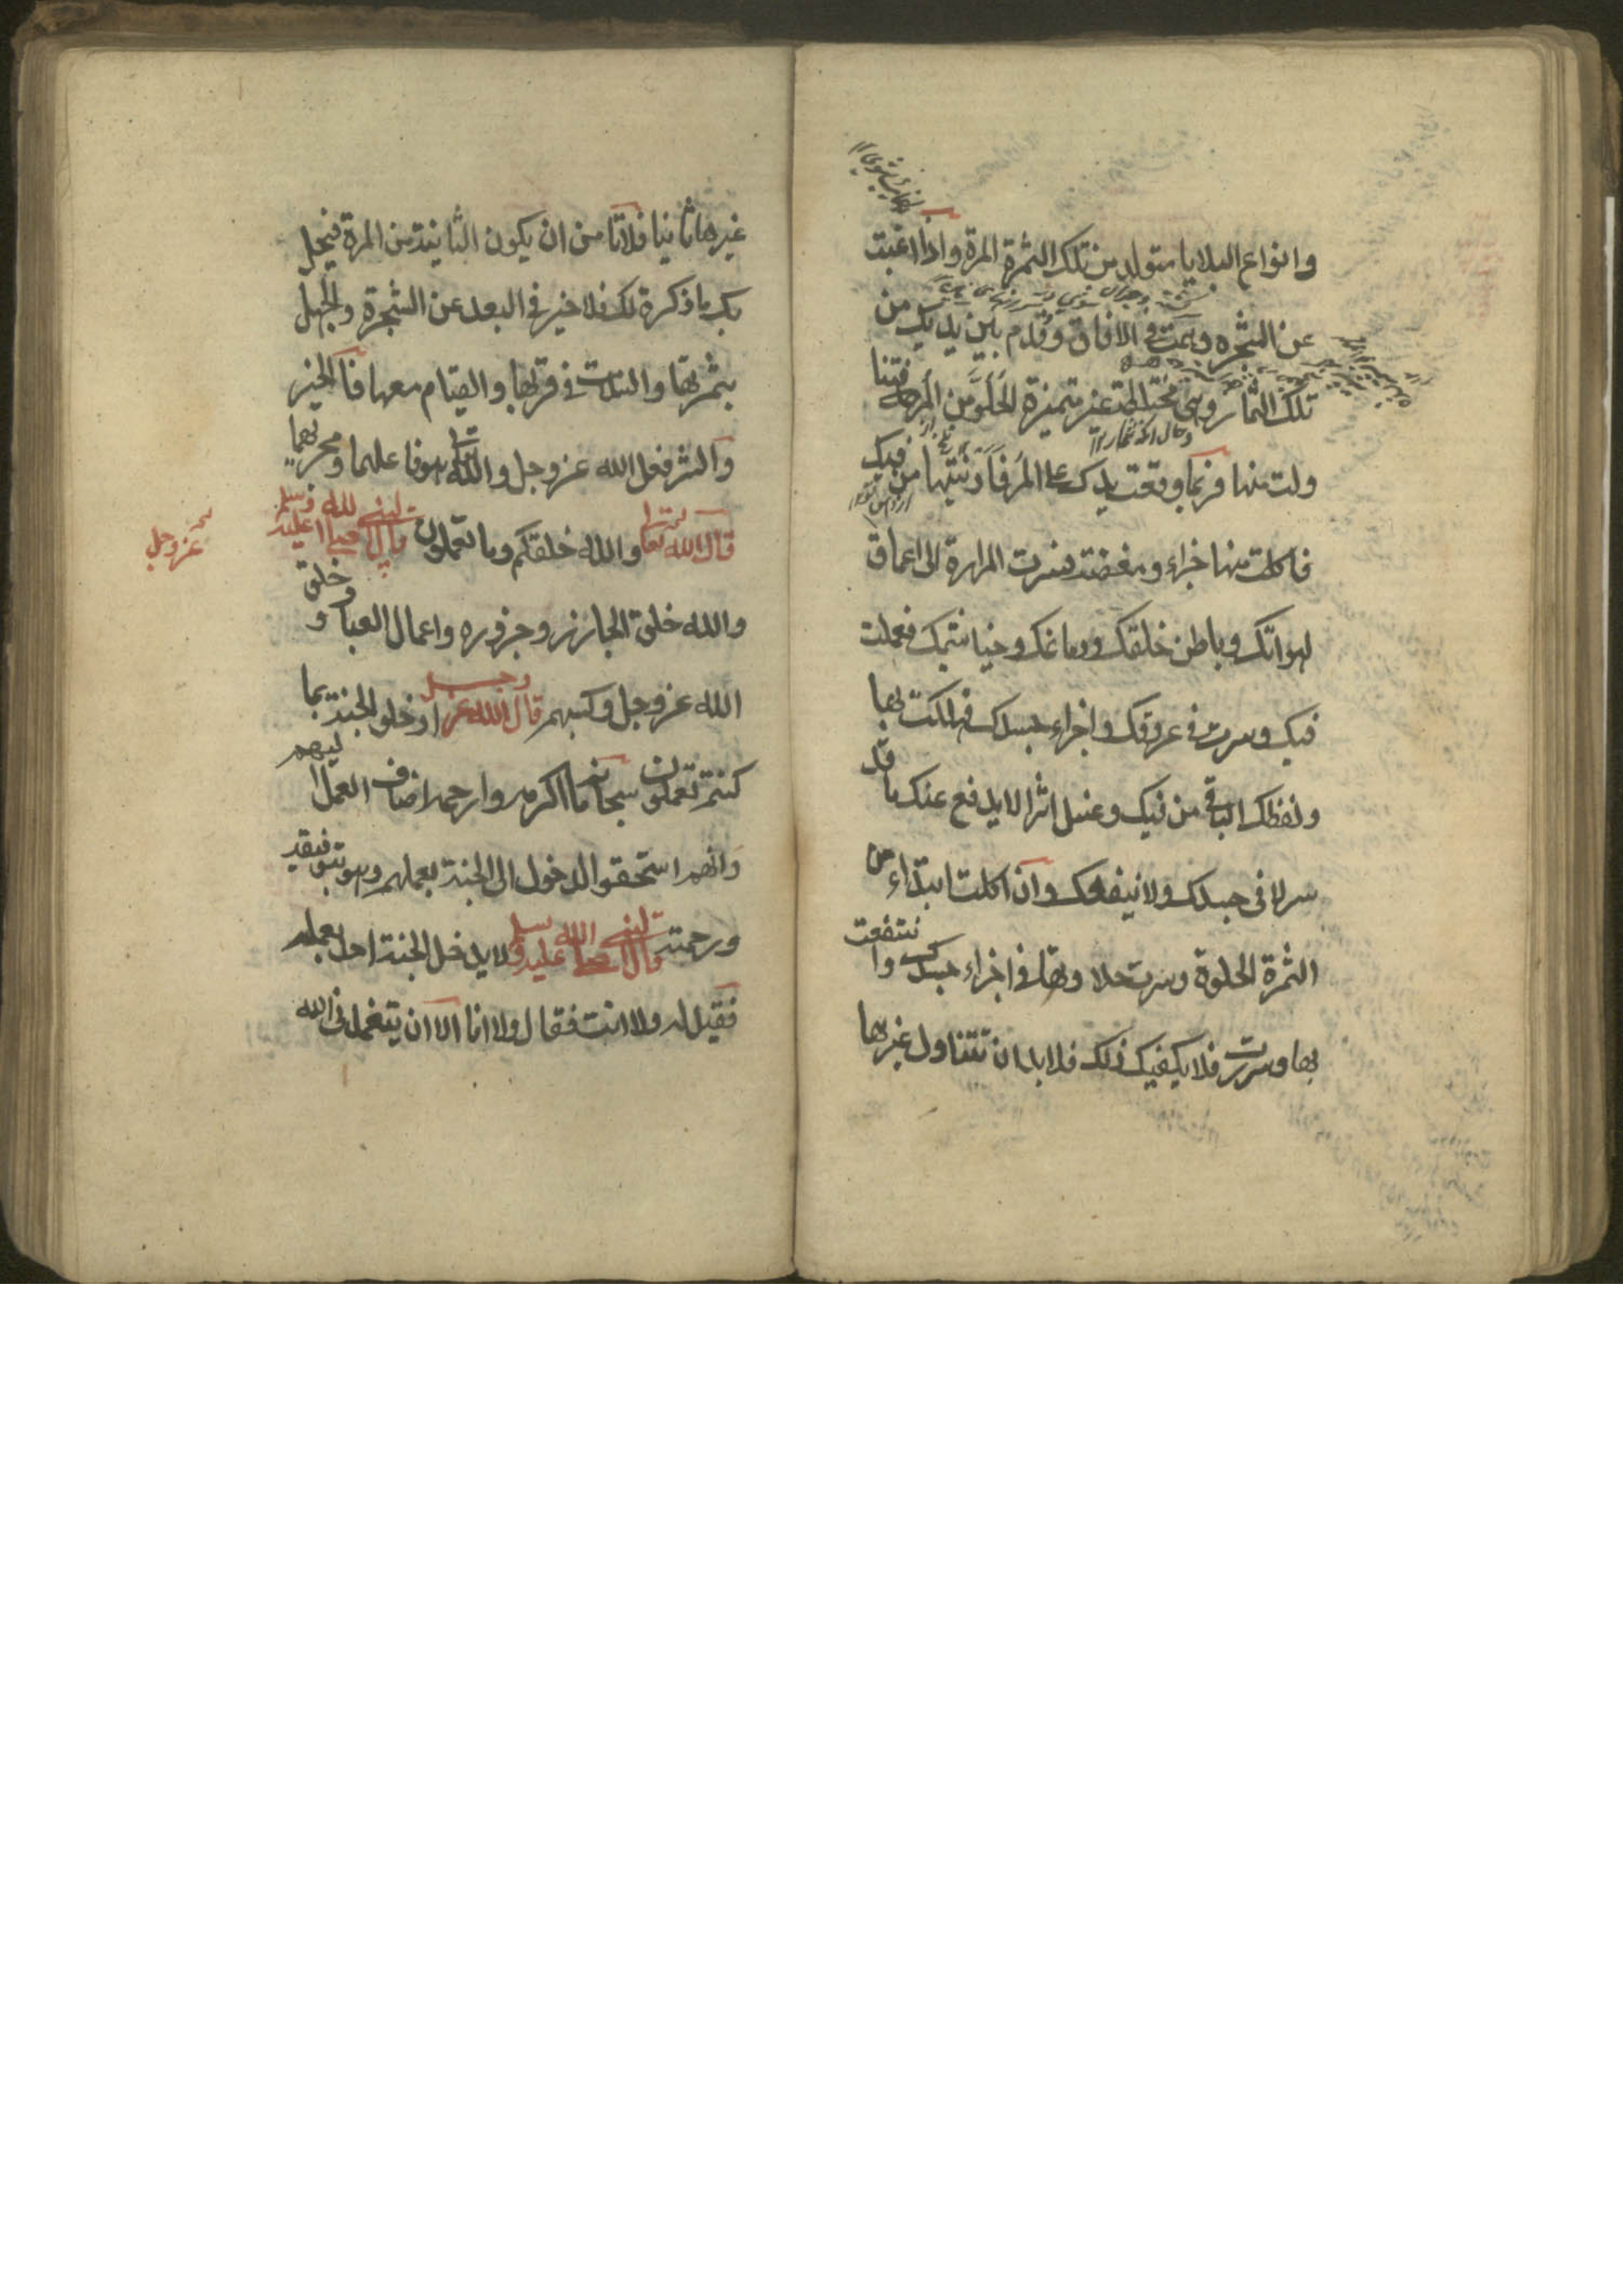 وانواع البلايا متولد من تلك الثمرة المرة واذا اغبت
عن الشجره وهمت فى الافاق وقدم بين يديك من
تلك الثمار وهى مختلطة غير متميزة الحلو من المر فتنا
ولت منها فربما وقعت يدك على المر فادنيتها من فيك
فاكلت منها جزاء ومضغته فسرت المرارة الى اعماق
لهواتك وباطن خلقك ودماغك وخياشيمك فعملت
فيك وسرت فى عروقك واجزاء جسدك فهلكت بها
ولفظك الباقى من فيك وغسل اثرا لا يدفع عنك ما قد
سرا فى جسدك ولا ينفعك وان اكلت ابتداء من
الثمرة الحلوة وسرت حلاوتها فى اجزاء جسدك وانتفعت
بها وسررت فلا يكفيك ذلك فلا بد ان تتناول غيرها
غيرها ثانيا فلا تامن ان يكون الثانية من المرة فيحل
بك ما ذكرة لك فلا خير فى البعد عن الشجرة والجهل
بثمرتها والسلامت فى قربها والقيام معها فالخير
والشر فعل الله عز وجل والله تعالى هو فاعلهما ومجريهما
قال الله تعالى والله خلقكم وما تعملون قال النبي صلى الله عليه وسلم
عز وجل
والله خلق الجازر وجزوره واعمال العباد خلق
الله عز وجل وكسبهم قال الله عز وجل ادخلو الجنة بما
كنتم تعملون سبحانه ما اكرمه وارحمه اضاف العمل اليهم
وانهم استحقو الدخول الى الجنة بعملهم وهو بتوفيقه
ورحمته قال النبي صلى الله عليه وسلم لا يدخل الجنة احد بعمله
فقيل له ولا انت فقال ولا انا الا ان يتغمدنى الله